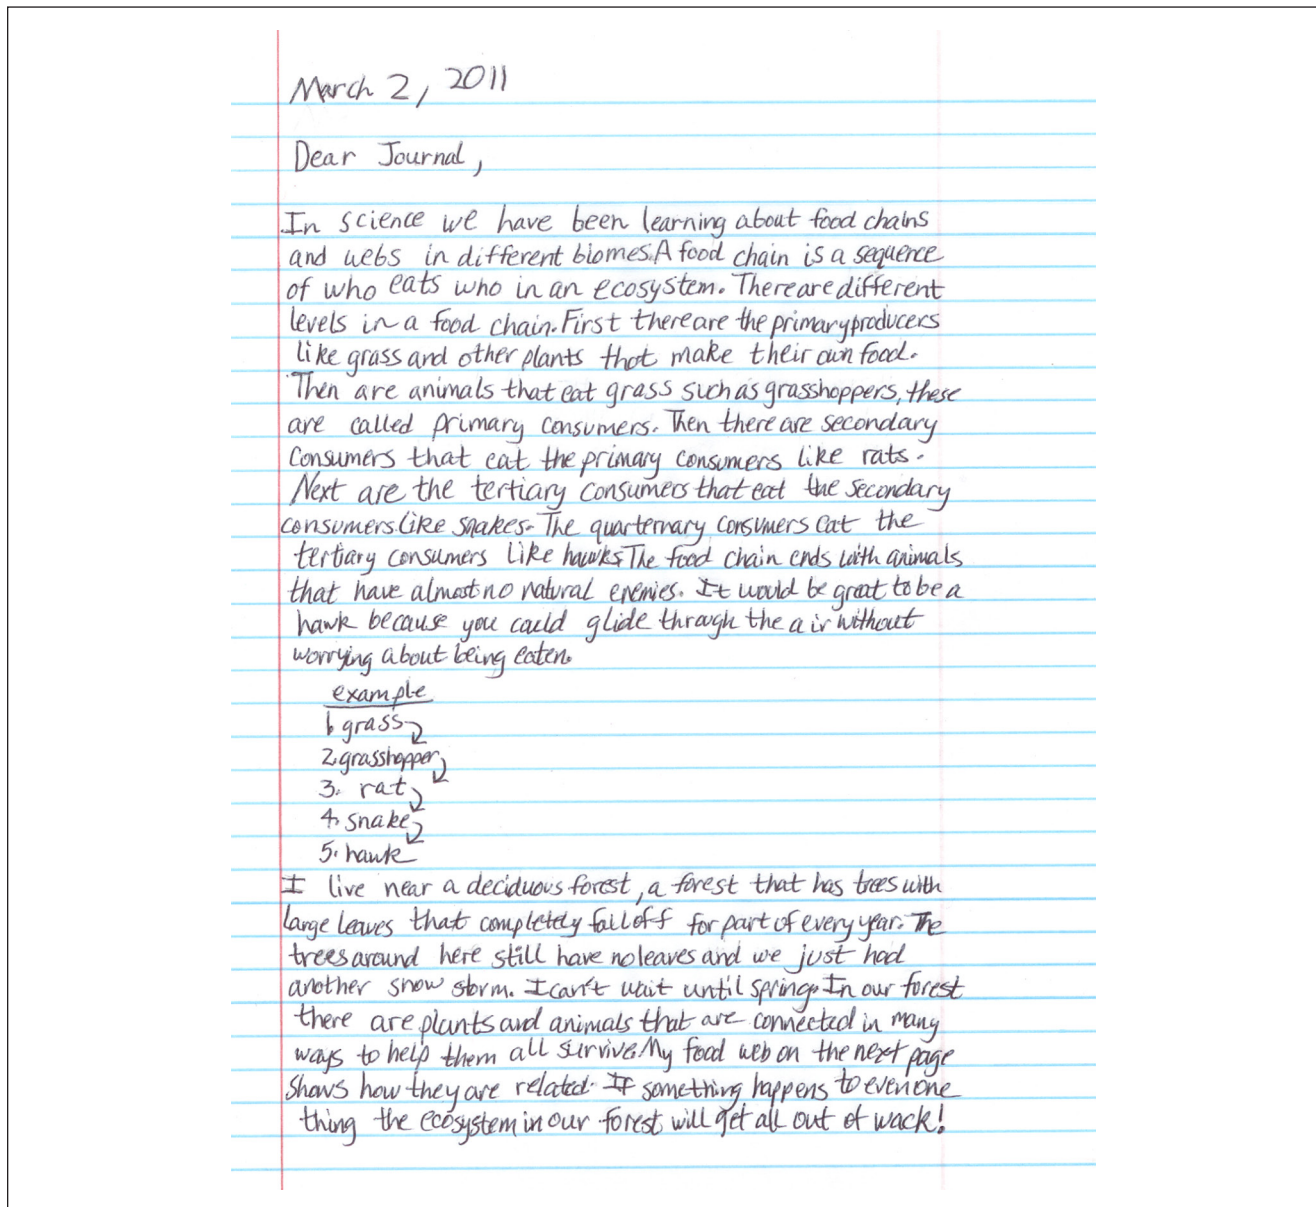 March 2, 2011
Dear Journal,
In science we have been learning about food chains
and webs in different biomes. A food chain is a sequence
of who eats who in an ecosystem. There are different
levels in a food chain. First there are the primary producers
like grass and other plants that make their own food.
Then are animals that eat grass such as grasshoppers, these
are called primary consumers. Then there are secondary
consumers that eat the primary consumers like rats.
Next are the tertiary consumers that eat the secondary
consumers like snakes. The quarternary consumers eat the
tertiary consumers like hawks. The food chain ends with animals
that have almost no natural enemies. It would be great to be a
hawk because you could glide through the air without
worrying about being eaten.
example
1. grass
2. grasshopper
3. rat
4. snake
5. hawk
I live near a deciduous forest, a forest that has trees with
large leaves that completely fall off for part of every year. The
trees around here still have no leaves and we just had
another snow storm. I can't wait until spring. In our forest
there are plants and animals that are connected in many
ways to help them all survive. My food web on the next page
shows how they are related. If something happens to even one
thing the ecosystem in our forest will get all out of wack!